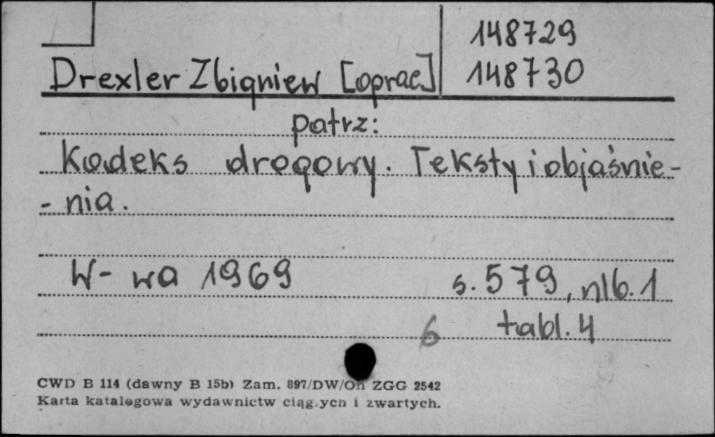 148729
Drexler Zbigniew [oprac] 148730
patrz:
Kodeks drogowy. Teksty i objaśnie-
- nia.
W- wa 1969 s. 579, nlb. 1
6 tabl. 4
CWD B 114 (dawny B 15b) Zam. 897/DW/On ZGG 2542
Karta katalogowa wydawnictw ciąg.ych i zwartych.